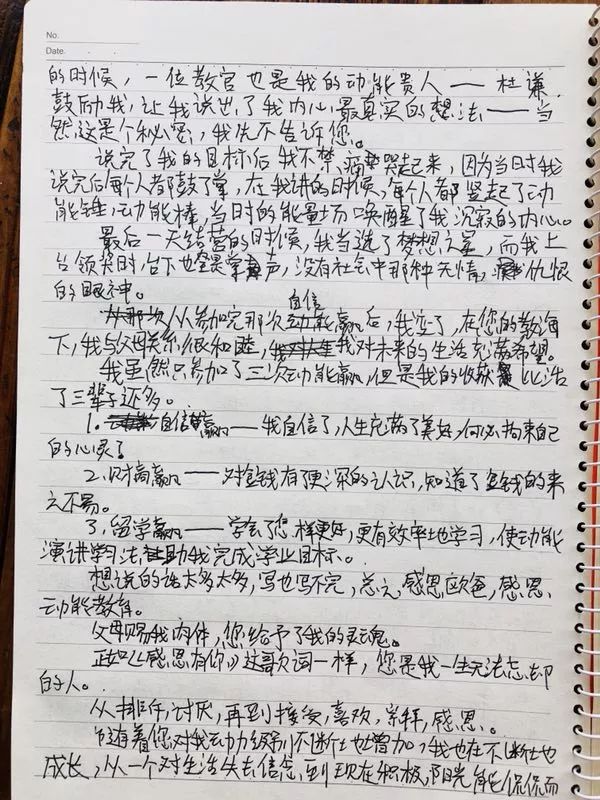 No.
Date.
的时候，一位教官也是我的动能贵人——杜谦
鼓励我，让我说出了我内心最真实的想法——当
然这是个秘密，我先不告诉您。
说完了我的目标后我不禁痛哭起来，因为当时我
说完后每个人都鼓了掌，在我讲的时候，每个人都竖起了动
能锤，动能棒，当时的能量场唤醒了我沉寂的内心。
最后一天结营的时候，我当选了梦想之星，而我上
台领奖时，台下也全是掌声，没有社会中那种无情，仇恨
的眼神。
从参加完那次自信赢后，我变了，在您的教诲
下，我与父母关系很和睦，我对未来的生活充满希望。
我虽然只参加了三次动能赢，但是我的收获比活
了三辈子还多。
1. 自信赢——我自信了，人生充满了美好，何必拘束自己
的心灵？
2.财商赢——对金钱有更深的认识，知道了金钱的来
之不易。
3，留学赢——学会了怎样更好，更有效率地学习，使动能
演讲学习法助我完成学业目标。
想说的话太多太多，写也写不完，总之，感恩欧爸，感恩
动能教育。
父母赐我肉体，您给予了我的灵魂。
正如《感恩有你》这歌词一样，您是我一生无法忘却
的人。
从排斥，讨厌，再到接受，喜欢，崇拜，感恩。
随着您对我动力级别不断地增加，我也在不断地
成长，从一个对生活失去信念，到现在积极，阳光，能侃侃而